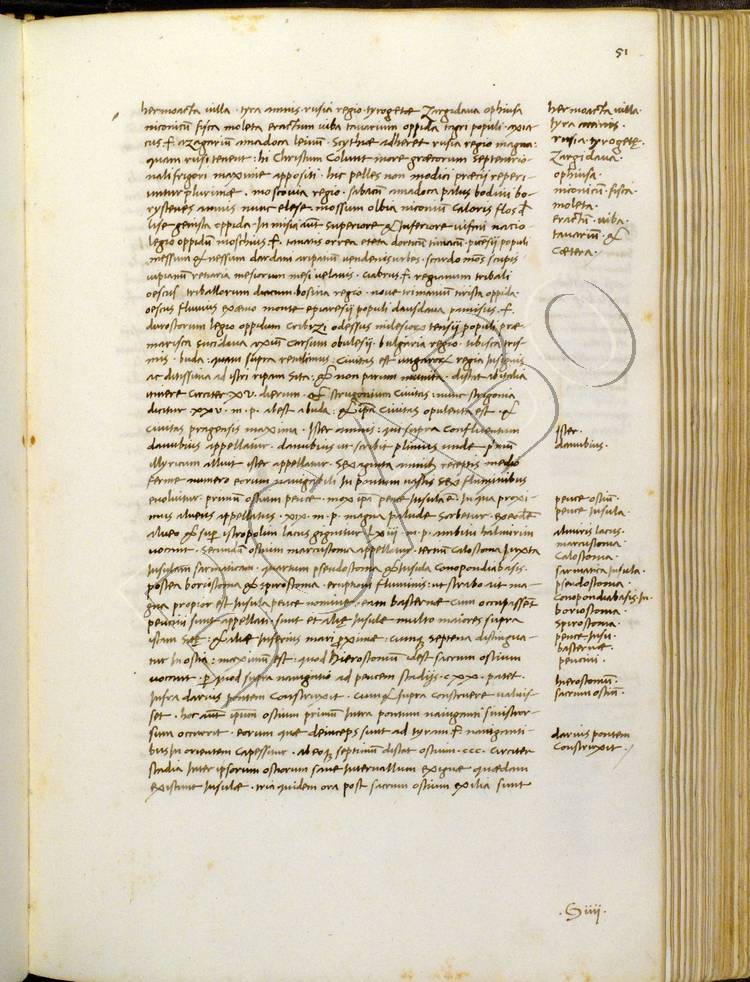 51
hermoacta villa · tyra amnis · rusia regio · tyrogetę Zargidava ophiusa
niconicū fisca moleta eractum viba tavarium oppida tagri populi · axia
cus f. azagariū amadoca leinū · Scythię adheret rusia regio magna:
quam rusi tenent: hi Christum Colunt more gręcorum septentrio
nali frigori maxime appositi · hic pelles non modici pręcii reperi-
untur plurimę · moscovia regio · sabacū amadoca palus bodini bo-
rystenes amnis nunc elese · mossum olbia niconiū Caloris flos
lise genista oppida · In misia aūt superiore & Inferiore
legio oppidū moschius f. tanatis orrea eteta dorticū timacū · picesii populi
messium & nessum dardani aripatiū vendenis urbes · scardo mōs scupis
vlpianū remaria mesiorum mesi velanis · ciabrus f. regianum tribali
oescus triballorum diacum · bosina regio · nove trimaniū tirista oppida ·
oescus fluvius exęmo monte epiaresii populi dausdava panisus · f.
durostorum legio oppidum odessus milesiorū tensii populi prę
marisca sucidava axiū Carsum obulesii · bulgaria regio · ubisca tris
mis · buda: quam supra retulimus: Civitas est ungarorū regia Insignis
ac ditissima ad istri ripam sita: & non parum munita · distat ab italia
itinere circiter XV dierum · & strugonium Civitas: nunc strigonia
dicitur XXV · m · p · abest a buda: & ipsa Civitas opulenta est · &
civitas pragensis maxima · Ister amnis: qui supra Confluentium
danubius appellatur · danubius ut scribit plinius unde primū
illyricum alluit ister appellatur · Sexaginta amnibus receptis medio
ferme numero eorum navigabili In pontum vastis sex fluminibus
evolvitur · primum ostium peuce · mox ipsa peuce Insula ē · In qua proxi-
mus alveus appellatus · XIX · m · p · magna palude sorbetur · ex eodē
alveo & supra istropolim lacus gignitur Lxiii · m · p · ambitu halmirim
vocant · Secundū ostium narcustoma appellatur · tertiū Calostoma Juxta
Insulam sarmaticam · quartum pseudostoma & Insula Conopondiabasis ·
postea boriostoma & spirostoma · eruptioni fluminis: ut strabo ait ma-
gna propior est Insula peuce nomine · eam basternę cum occupassēt
peucini sunt appellati · sunt et alię Insulę multo maiores supra
istam sitę · & alię Inferius mari proximę · cumque septena distingua-
tur In ostia: maximū est: quod hierostomū idest sacrum ostium
vocant · per quod supra navigatio ad peucem stadiis · cxx · patet ·
Infra darius pontem Construxit · cum & supra construere valuis-
set · hoc aūt ipsum ostium primū Intra pontum naviganti sinistror-
sum occurrit · eorum quę deinceps sunt ad tyram f. naviganti-
bus In orientem Capessitur · ab eoque septimū distat ostium · ccc · circiter
stadia Inter ipsorum ostiorum sane Intervallum exiguę quędam
existunt Insulę · tria quidem ora post sacrum ostium exilia sunt
hermoacta villa ·
tyra amnis ·
rusia · tyrogetę ·
Zargidava ·
ophiusa ·
niconicū · fisca ·
moleta ·
eractū · viba ·
tavariū · &
cætera ·
Ister ·
danubius ·
peuce ostiū ·
peuce Insula
almiris lacus ·
narcustoma ·
Calostoma ·
sarmatica Insula ·
pseudostoma ·
Conopondiabasis In ·
boriostoma ·
spirostoma ·
peuce Insu ·
basternę ·
peucini ·
hierostomū ·
sacrum ostiū ·
darius pontem
Construxit ·
· G iiij ·